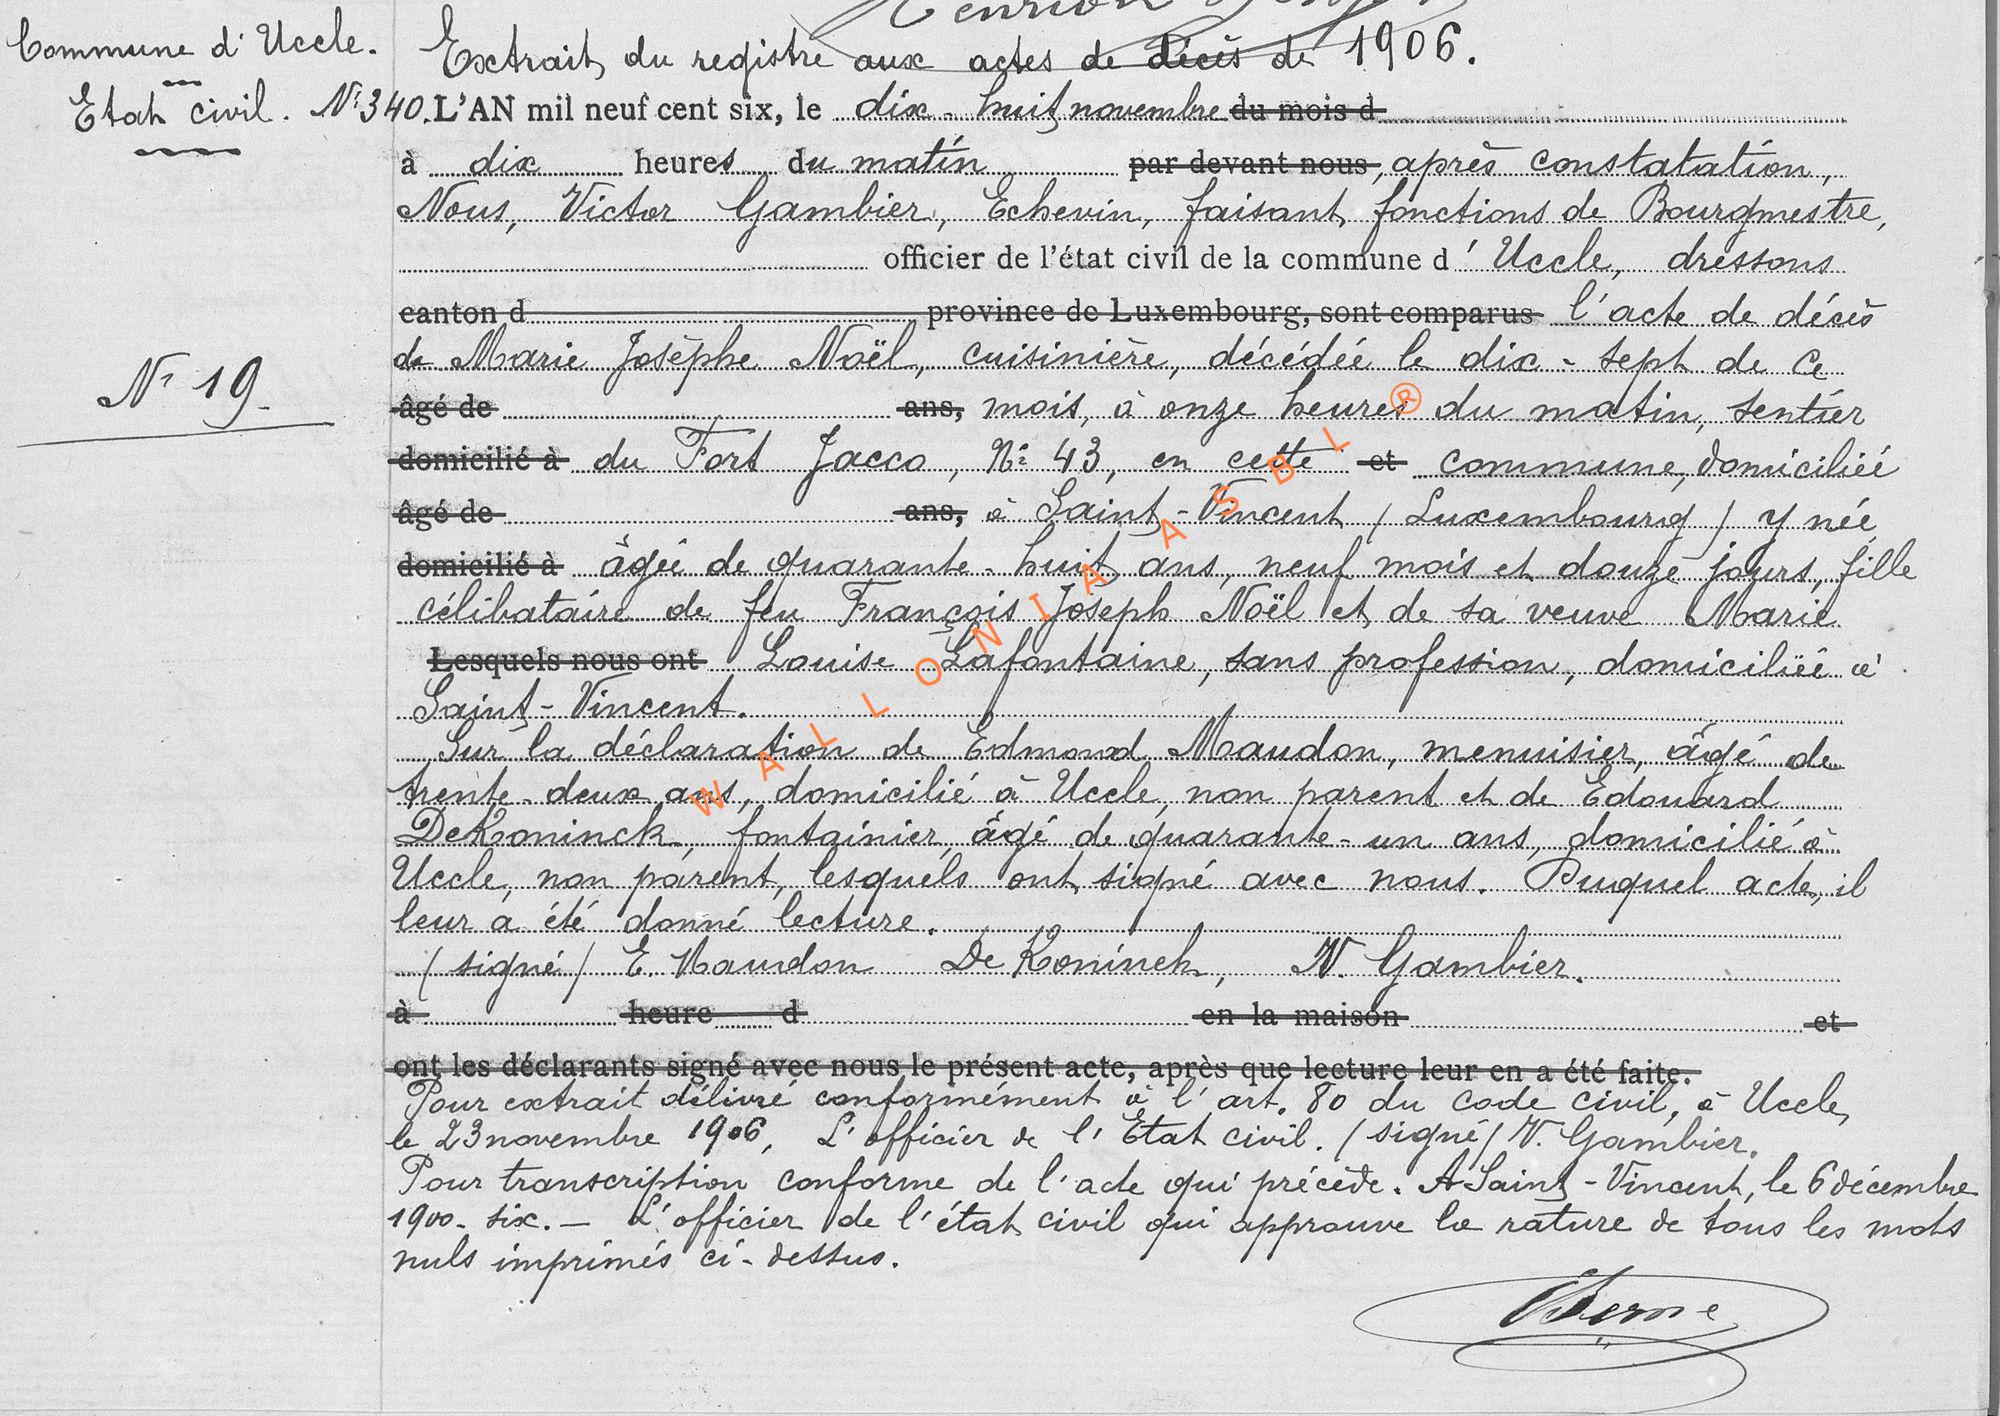 Commune d'Uccle.
Etat civil. N° 340.
N° 19
Extrait du registre aux actes de décès de 1906.
L'AN mil neuf cent six, le dix-huit novembre du mois d
à dix heures du matin par devant nous, après constatation,
Nous, Victor Gambier, Echevin, faisant fonctions de Bourgmestre,
officier de l'état civil de la commune d'Uccle, dressons
canton d province de Luxembourg, sont comparus l'acte de décès
de Marie Josèphe Noël, cuisinière, décédée le dix-sept de ce
âgé de ans, mois, à onze heures du matin, sentier
domicilié à du Fort Jacco, N° 43, en cette et commune, domiciliée
âgé de ans, à Saint-Vincent (Luxembourg) y née
domicilié à âgée de quarante-huit ans, neuf mois et douze jours, fille
célibataire de feu François Joseph Noël et de sa veuve Marie
Lesquels nous ont Louise Lafontaine, sans profession, domiciliée à
Saint-Vincent.
Sur la déclaration de Edmond Maudon, menuisier, âgé de
trente-deux ans, domicilié à Uccle, non parent et de Edouard
DeKoninck, fontainier, âgé de quarante-un ans, domicilié à
Uccle, non parent, lesquels ont signé avec nous. Duquel acte, il
leur a été donné lecture.
(signé) E. Maudon De Koninck, V. Gambier.
à heure d en la maison et
ont les déclarants signé avec nous le présent acte, après que lecture leur en a été faite.
Pour extrait délivré conformément à l'art. 80 du code civil, à Uccle,
le 23 novembre 1906. L'officier de l'Etat civil. (signé) V. Gambier.
Pour transcription conforme de l'acte qui précède. A Saint-Vincent, le 6 décembre
1900-six.- L'officier de l'état civil qui approuve la rature de tous les mots
nuls imprimés ci-dessus.
WALLONIA ASBL®